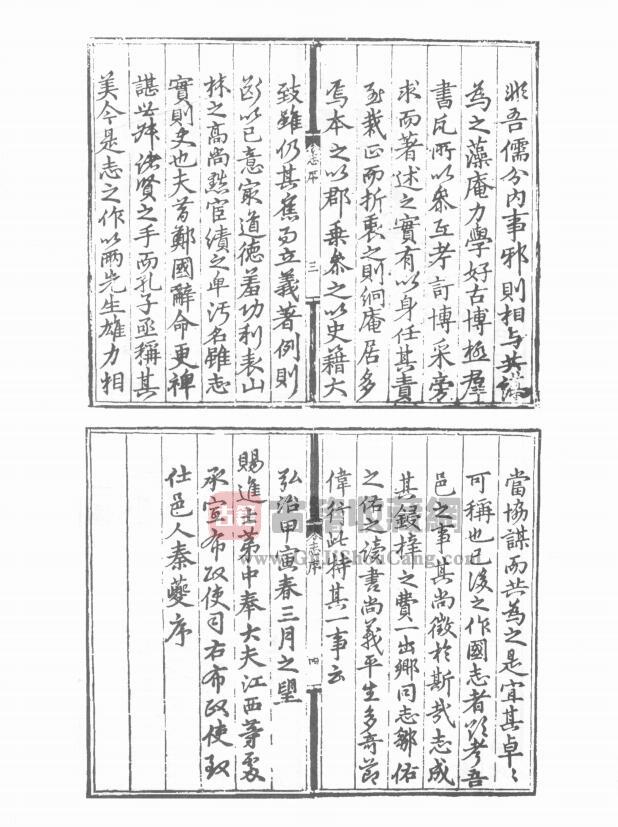 非吾儒分內事邪則相与共
為之藻庵力學好古博極群
書凡所以參互考訂博采旁
求而著述之實有以身任其責
至裁正而折衷之則絅庵居多
焉本之以郡乘參之以史籍大
志序 三
致雖仍其舊而立義著例則
斷以己意崇道德羞功利表山
林之高尚黜宦績之卑汚名雖志
實則史也夫昔鄭國辭命更裨
諶世叔諸賢之手而孔子亟稱其
美今是志之作以兩先生雄力相
當協謀而共為之是宜其卓〻
可稱也已後之作國志者欲考吾
邑之事其尚徵於斯哉志成
其鋟梓之費一出鄉同志鄒佑
之佑之讀書尚義平生多奇節
偉行此特其一事云
志序 四
弘治甲寅春三月之望
賜進士第中奉大夫江西等處
承宣布政使司右布政使致
仕邑人秦夔序
古籍收藏網
www.GuJiShouCang.com